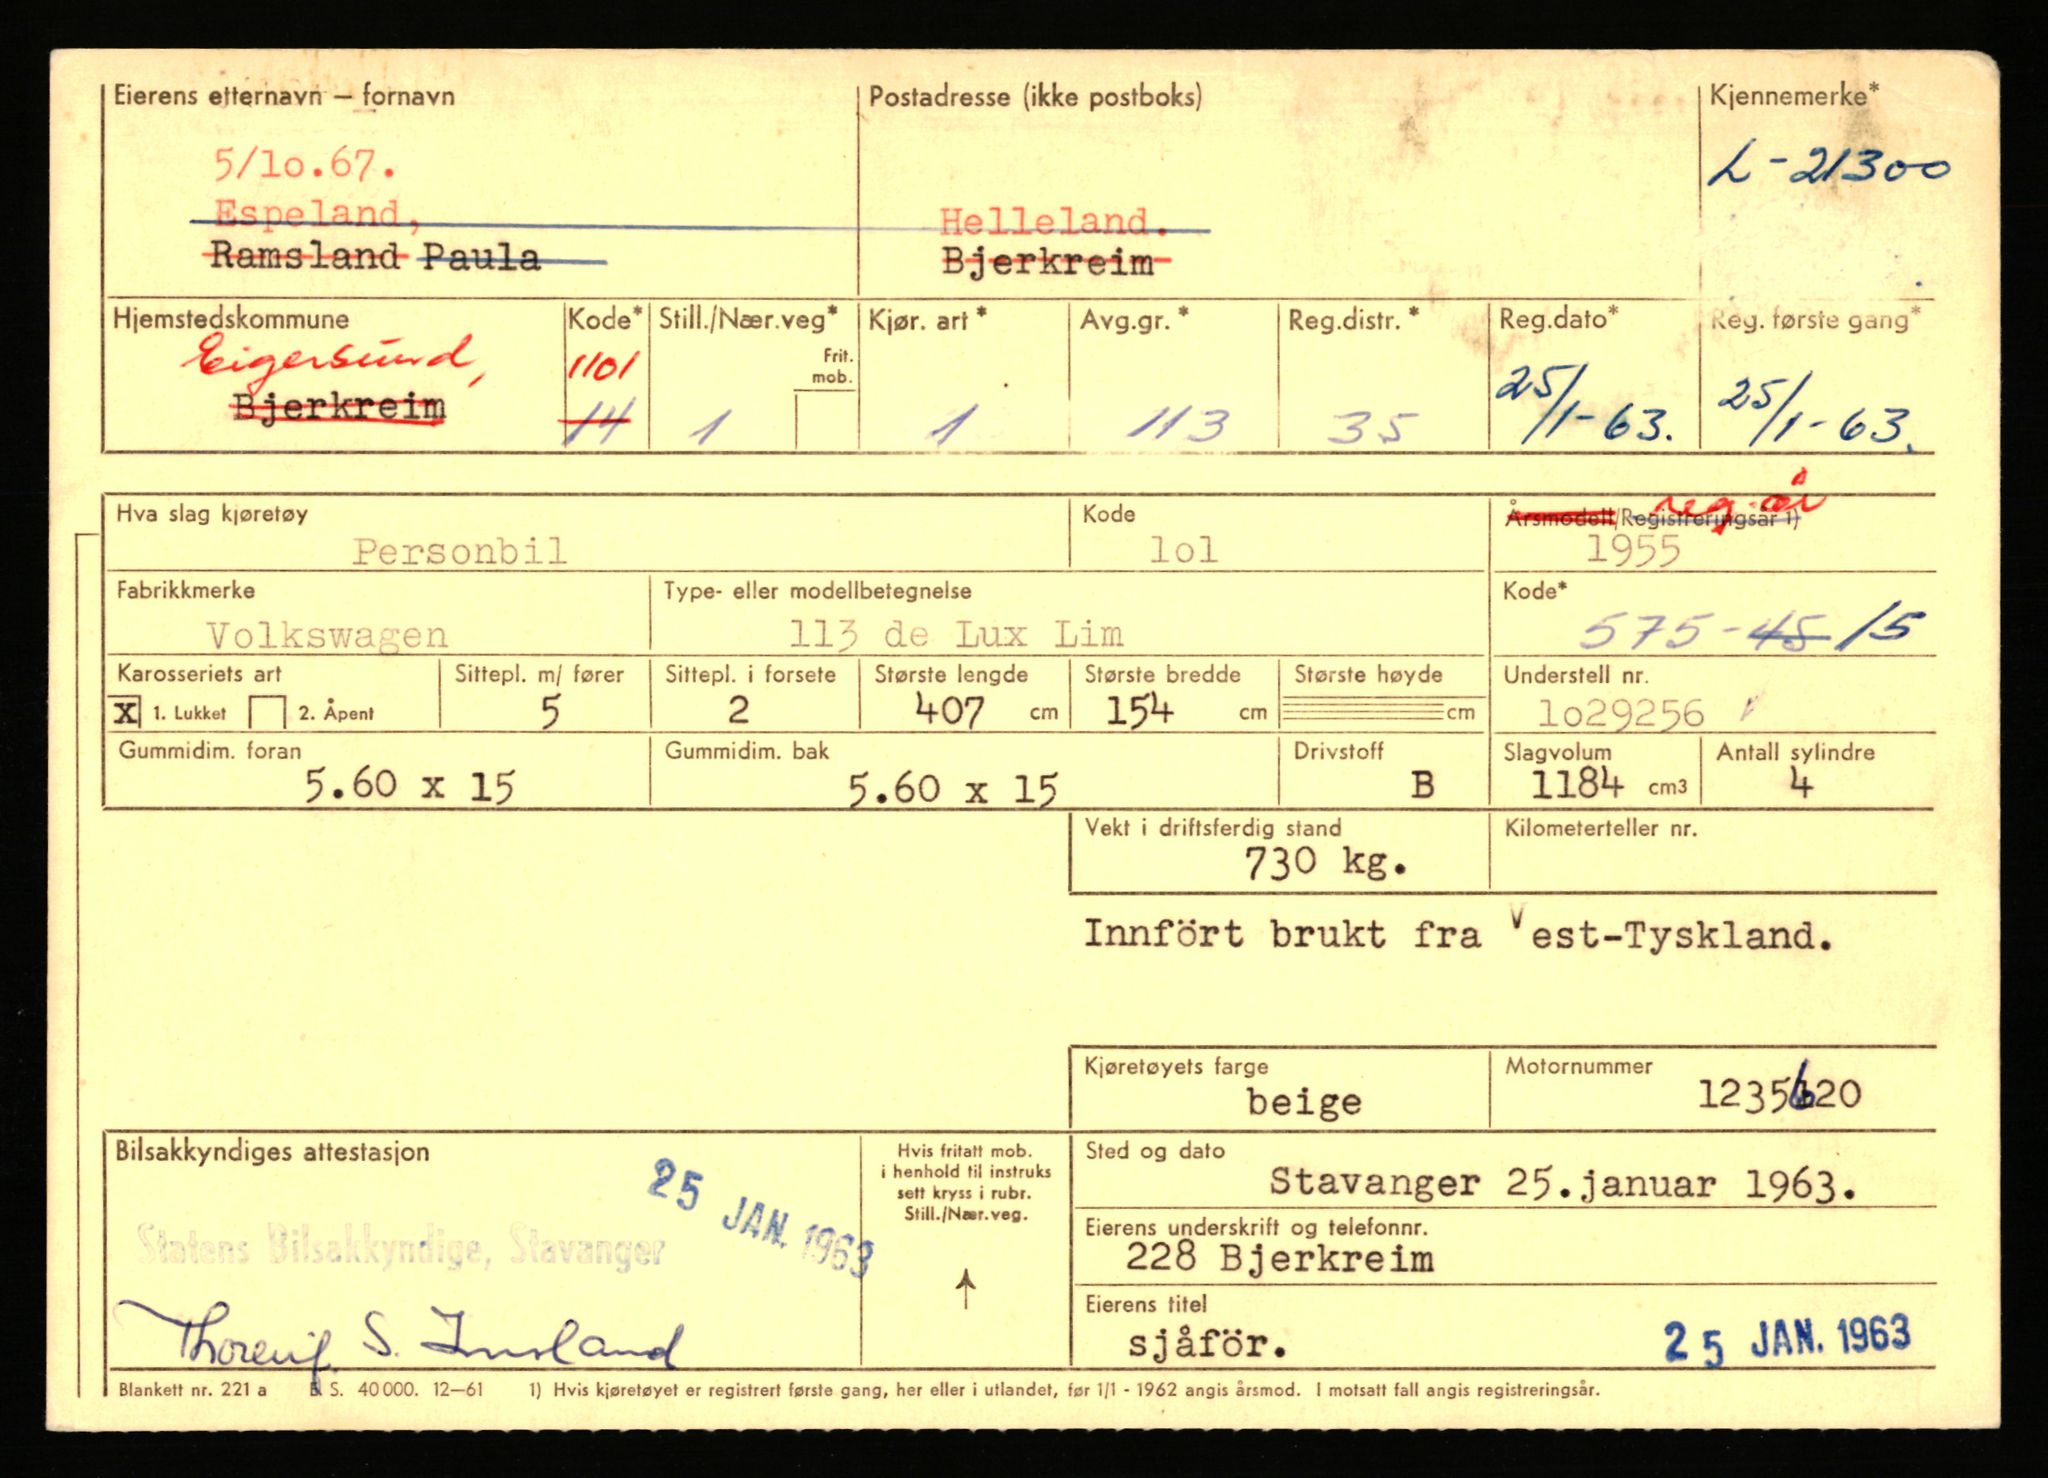 Eierens etternavn – fornavn
Postadresse (ikke postboks)
Kjennemerke*
L-21300
5/lo.67.
Espeland,
Helleland.
Ramsland Paula
Bjerkreim
Hjemstedskommune
Kode*
Still./Nær.veg*
Kjør. art*
Avg.gr.*
Reg.distr.*
Reg.dato*
Reg. første gang*
Eigersund,
1101
Frit.
mob.
Bjerkreim
14
1
1
113
35
25/1-63.
25/1-63.
Hva slag kjøretøy
Kode
Årsmodell/Registreringsår 1)
reg.år
Personbil
lol
1955
Fabrikkmerke
Type- eller modellbetegnelse
Kode*
Volkswagen
113 de Lux Lim
575-45 15
Karosseriets art
Sittepl. m/ fører
Sittepl. i forsete
Største lengde
Største bredde
Største høyde
Understell nr.
X 1. Lukket 2. Åpent
5
2
407 cm
154 cm
cm
lo29256
Gummidim. foran
Gummidim. bak
Drivstoff
Slagvolum
Antall sylindre
5.60 x 15
5.60 x 15
B
1184 cm3
4
Vekt i driftsferdig stand
Kilometerteller nr.
730 kg.
Innfört brukt fra Vest-Tyskland.
Kjøretøyets farge
Motornummer
beige
1235620
Bilsakkyndiges attestasjon
Hvis fritatt mob.
i henhold til instruks
sett kryss i rubr.
Still./Nær.veg.
Sted og dato
25 JAN. 1963
Stavanger 25.januar 1963.
Statens Bilsakkyndige, Stavanger
Eierens underskrift og telefonnr.
228 Bjerkreim
Eierens titel
sjåför.
25 JAN. 1963
Blankett nr. 221 a
S. 40 000. 12–61
1) Hvis kjøretøyet er registrert første gang, her eller i utlandet, før 1/1 - 1962 angis årsmod. I motsatt fall angis registreringsår.